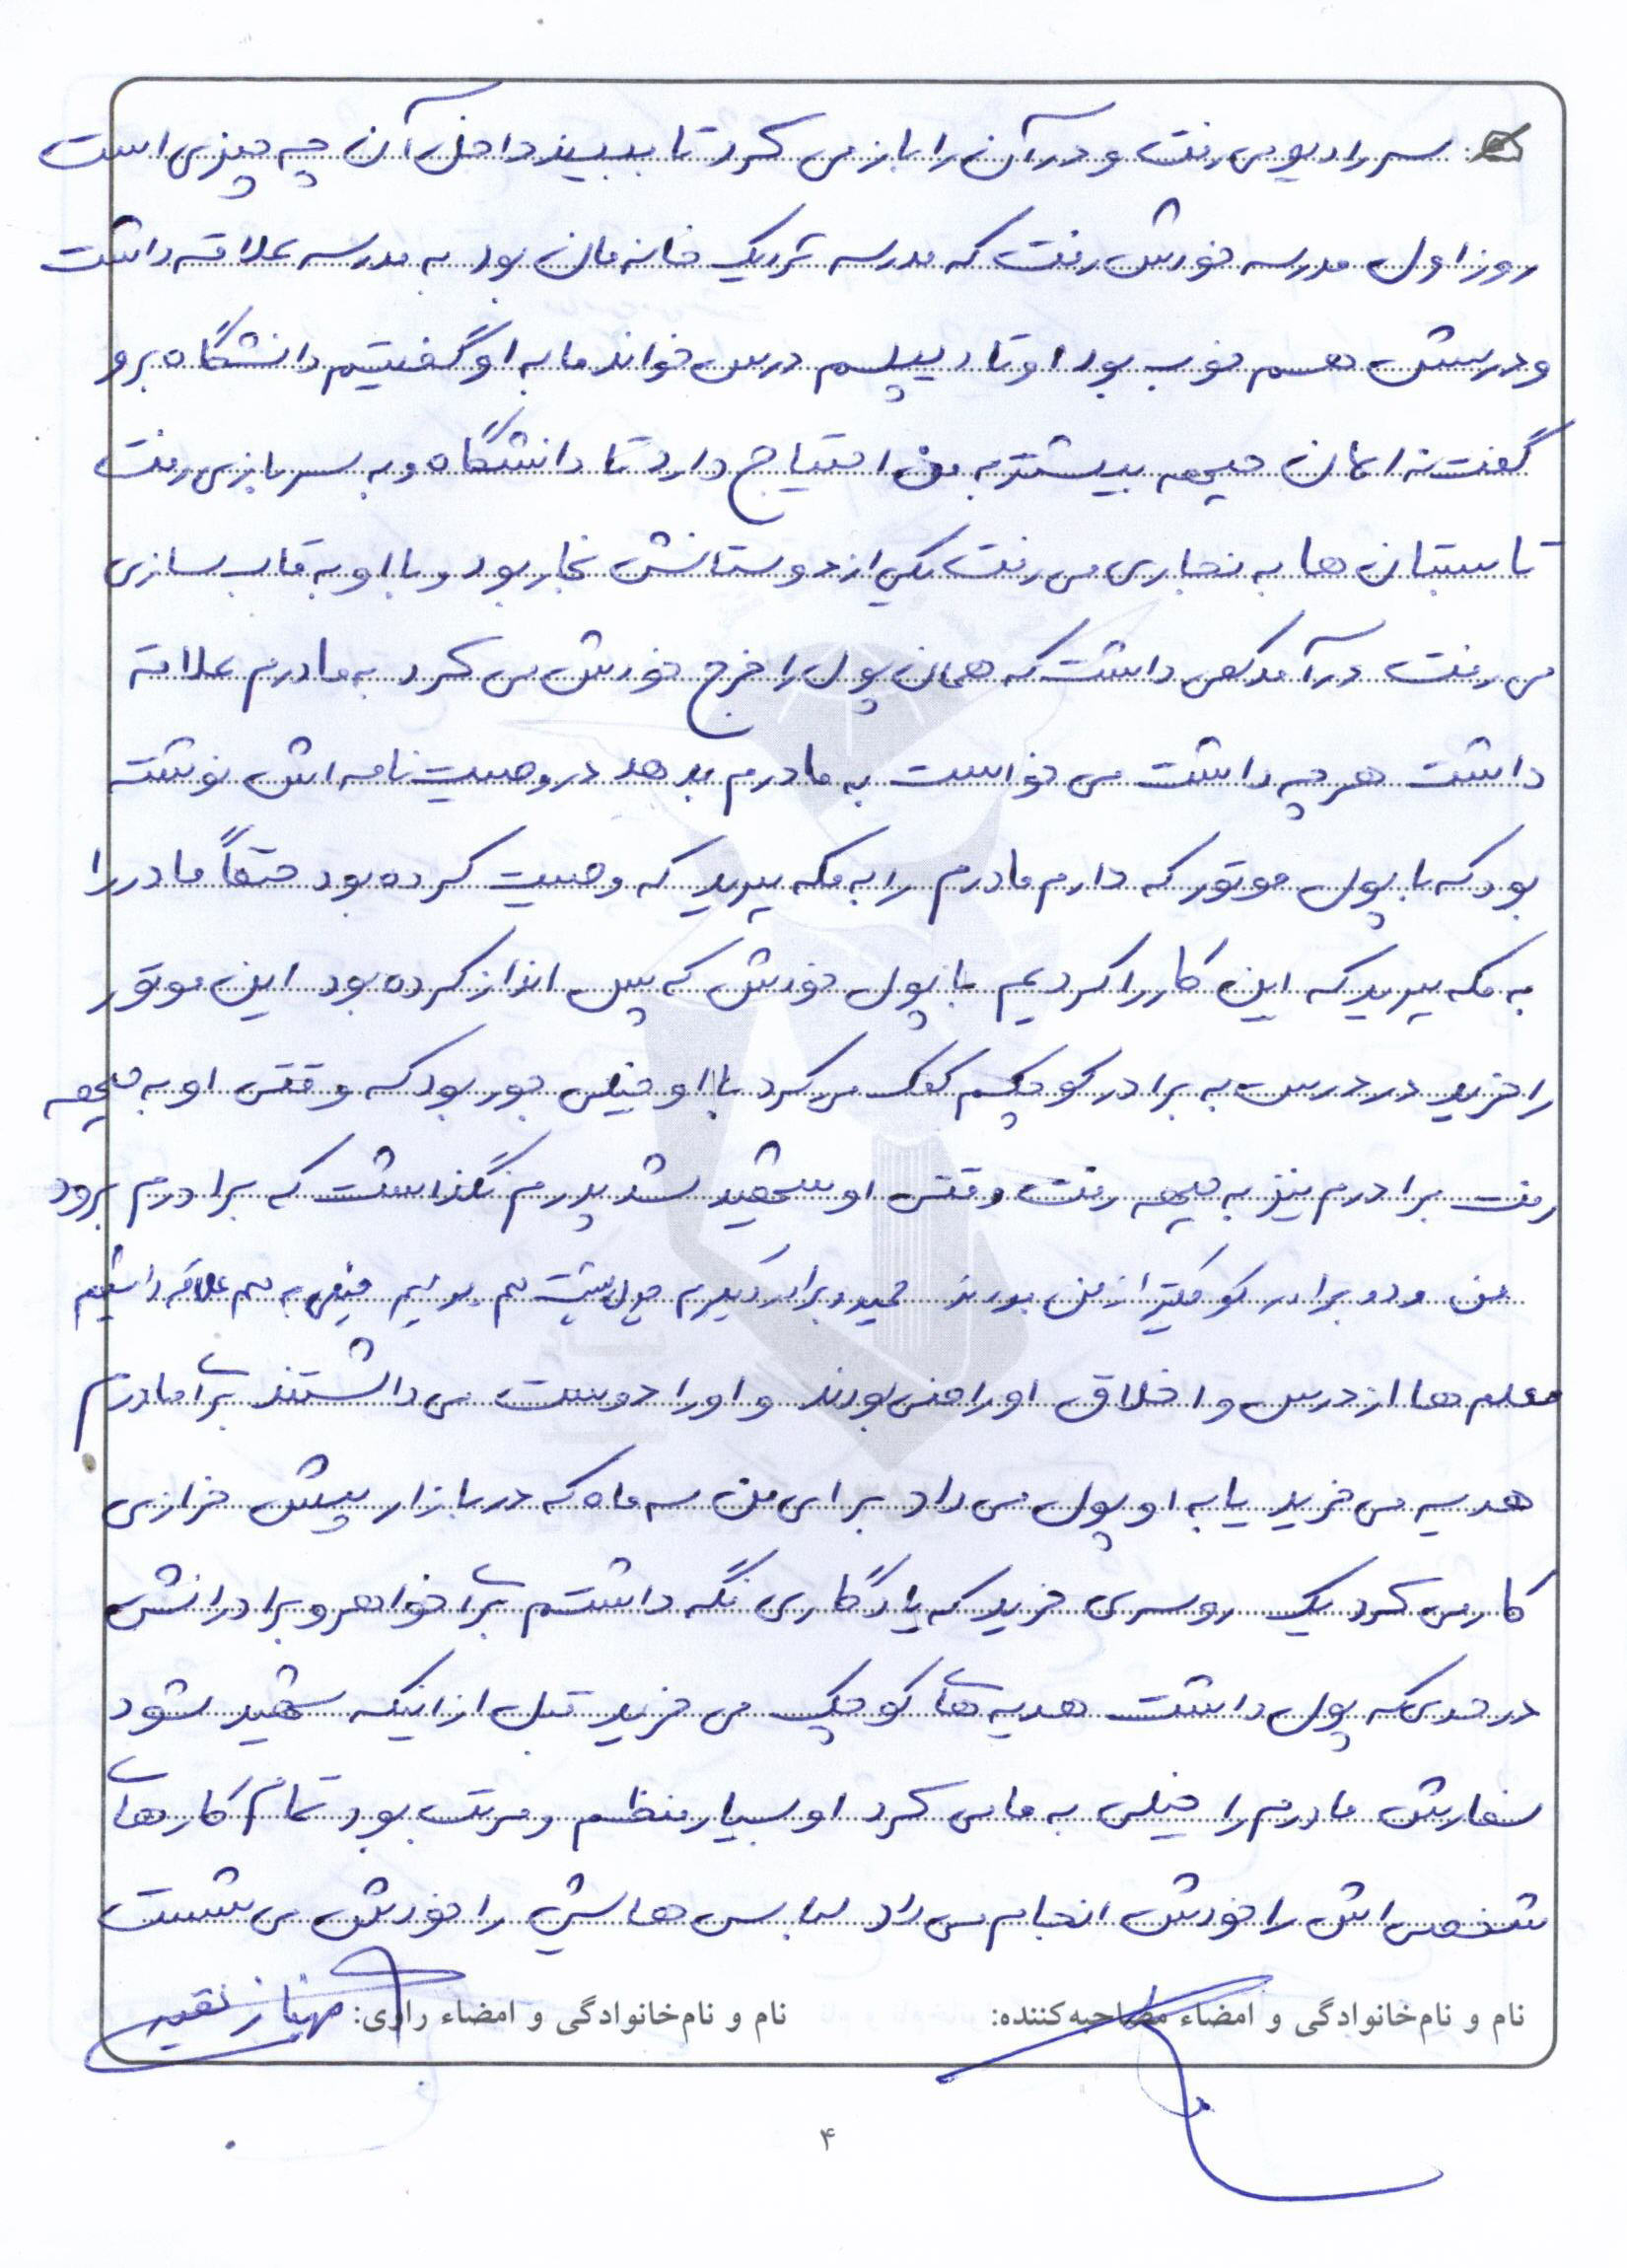 سر رادیو می رفت و در آن را باز می کرد تا ببیند داخل آن چه چیزی است
روز اول مدرسه خودش رفت که مدرسه نزدیک خانه مان بود به مدرسه علاقه داشت
و درسش هم خوب بود او تا دیپلم درس خواند ما به او گفتیم دانشگاه برو
گفت نه الان جبهه بیشتر به من احتیاج دارد تا دانشگاه و به سربازی رفت
تابستان ها به نجاری می رفت یکی از دوستانش نجار بود و با او به قاب سازی
می رفت درآمد کمی داشت که همان پول را خرج خودش می کرد به مادرم علاقه
داشت هر چه داشت می خواست به مادرم بدهد در وصیت نامه اش نوشته
بود که با پول موتور که دارم مادرم را به مکه ببرید که وصیت کرده بود حتماً مادر را
به مکه ببرید که این کار را کردیم با پول خودش که پس انداز کرده بود این موتور
را خرید در درس به برادر کوچکم کمک می کرد با او خیلی جور بود که وقتی او به جبهه
رفت برادرم نیز به جبهه رفت وقتی او شهید شد پدرم نگذاشت که برادرم برود
من و دو برادر کوچکتر از من بودند حمید و برادر دیگرم پشت هم بودیم خیلی به هم علاقه داشتیم
معلم ها از درس و اخلاق او راضی بودند و او را دوست می داشتند برای مادرم
هدیه می خرید یا به او پول می داد برای من سه ماه که در بازار پیش خرازی
کار می کرد یک روسری خرید که یادگاری نگه داشتم برای خواهر و برادرانش
در حدی که پول داشت هدیه های کوچک می خرید قبل از اینکه شهید شود
سفارش مادرم را خیلی به ما می کرد او بسیار منظم و مرتب بود تمام کارهای
شخصی اش را خودش انجام می داد لباس هایش را خودش می شست
نام و نام‌خانوادگی و امضاء مصاحبه‌کننده: نام و نام‌خانوادگی و امضاء راوی: مهناز
۴